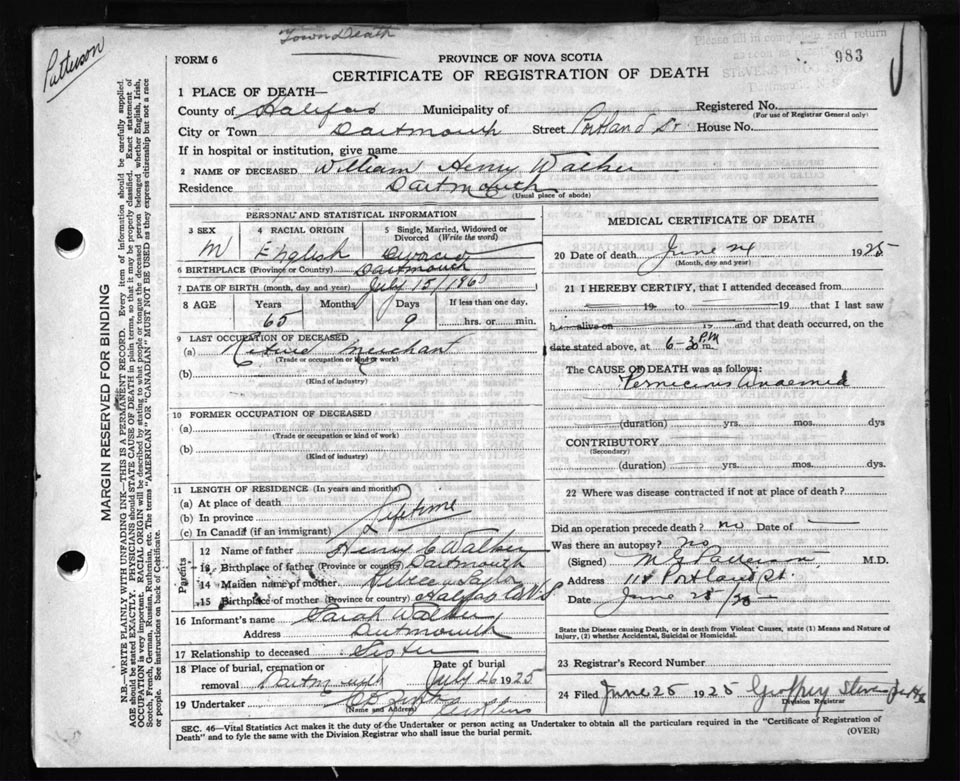 Town Death
Patterson
983
FORM 6
PROVINCE OF NOVA SCOTIA
CERTIFICATE OF REGISTRATION OF DEATH
1 PLACE OF DEATH—
County of Halifax Municipality of Registered No.
(For use of Registrar General only)
City or Town Dartmouth Street Portland St House No.
If in hospital or institution, give name
2 NAME OF DECEASED William Henry Walker
Residence Dartmouth
(Usual place of abode)
PERSONAL AND STATISTICAL INFORMATION
3 SEX 4 RACIAL ORIGIN 5 Single, Married, Widowed or Divorced (Write the word)
M English Divorced
6 BIRTHPLACE (Province or Country) Dartmouth
7 DATE OF BIRTH (month, day and year) July 15/1860
8 AGE Years Months Days If less than one day,
65 9 hrs. or min.
9 LAST OCCUPATION OF DECEASED
(a) Retired Merchant
(Trade or occupation or kind of work)
(b)
(Kind of industry)
10 FORMER OCCUPATION OF DECEASED
(a)
(Trade or occupation or kind of work)
(b)
(Kind of industry)
11 LENGTH OF RESIDENCE (In years and months)
(a) At place of death
(b) In province Lifetime
(c) In Canada (if an immigrant)
Parents
12 Name of father Henry C Walker
13 Birthplace of father (Province or country) Dartmouth
14 Maiden name of mother Taylor
15 Birthplace of mother (Province or country) Halifax N S
16 Informant's name Sarah Walker
Address Dartmouth
17 Relationship to deceased Sister
18 Place of burial, cremation or removal Dartmouth Date of burial July 26 1925
19 Undertaker
(Name and Address)
MEDICAL CERTIFICATE OF DEATH
20 Date of death June 24 1925
(Month, day and year)
21 I HEREBY CERTIFY, that I attended deceased from
19 to 19 that I last saw
h im alive on 19 and that death occurred, on the
date stated above, at 6-30 P.M m.
The CAUSE OF DEATH was as follows:
Pernicious Anaemia
(duration) yrs. mos. dys
CONTRIBUTORY
(Secondary)
(duration) yrs. mos. dys.
22 Where was disease contracted if not at place of death?
Did an operation precede death? no Date of —
Was there an autopsy? No
(Signed) M. G. Patterson, M.D.
Address 118 Portland St.
Date June 25/25
State the Disease causing Death, or in death from Violent Causes, state (1) Means and Nature of Injury, (2) whether Accidental, Suicidal or Homicidal.
23 Registrar's Record Number
24 Filed June 25 1925 Geoffrey Stevens
Division Registrar
SEC. 46—Vital Statistics Act makes it the duty of the Undertaker or person acting as Undertaker to obtain all the particulars required in the "Certificate of Registration of
Death" and to fyle the same with the Division Registrar who shall issue the burial permit.
(OVER)
MARGIN RESERVED FOR BINDING
N.B.—WRITE PLAINLY WITH UNFADING INK—THIS IS A PERMANENT RECORD. Every item of information should be carefully supplied.
AGE should be stated EXACTLY. PHYSICIANS should STATE CAUSE OF DEATH in plain terms, so that it may be properly classified. Exact statement of
OCCUPATION is very important. RACIAL ORIGIN will be described by stating to what people or tongue the deceased person belonged whether English, Irish,
Scotch, French, German, Russian, Ruthenian, etc. The terms "AMERICAN" OR "CANADIAN" MUST NOT BE USED as they express citizenship but not a race
or people. See instructions on back of Certificate.